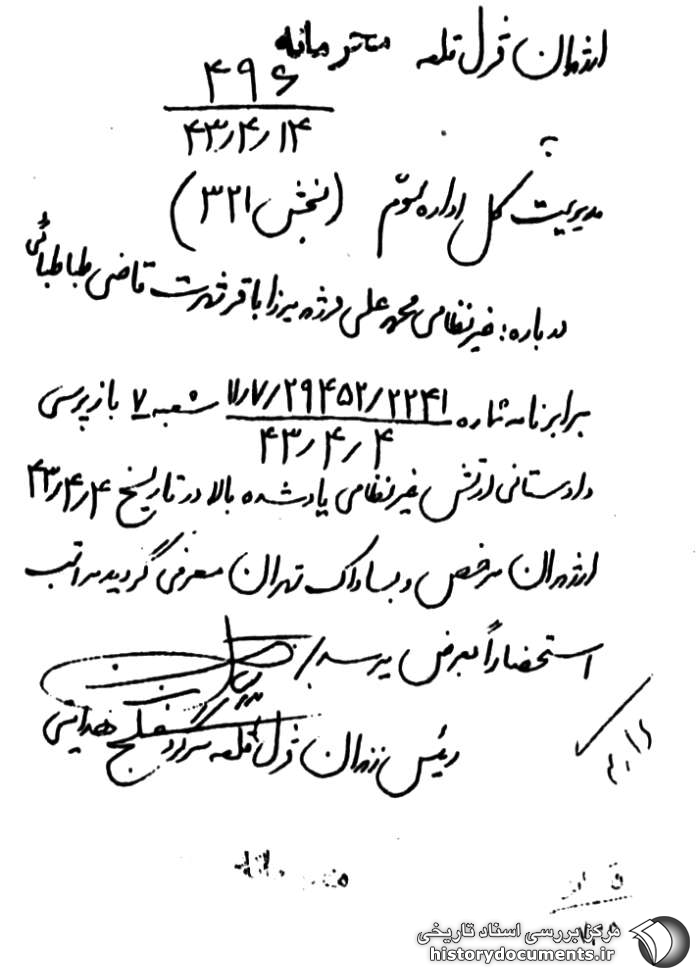 از زندان قزل قلعه محرمانه
۴۹۶
۴۳/۴/۱۴
به
مدیریت کل اداره سوم (بخش ۳۲۱)
درباره: غیرنظامی محمد علی فرزند میرزا باقر شهرت قاضی طباطبائی
برابر نامه شماره ۷/۷/۲۹۴۵۲/۲۲۴۱ شعبه ۷ بازپرسی
۴۳/۴/۴
دادستانی ارتش غیرنظامی یاد شده بالا در تاریخ ۴۳/۴/۴
از زندان مرخص و بساواک تهران معرفی گردید مراتب
استحضاراً بعرض میرسد
رئیس زندان قزل قلعه سروان
محرمانه
مرکز بررسی اسناد تاریخی
historydocuments.ir